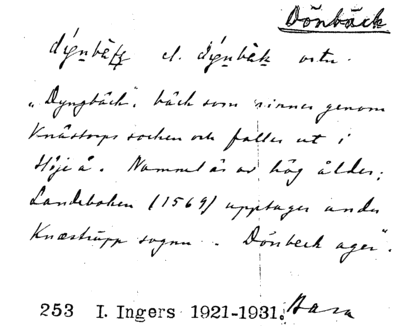 Dönbäck
el. ortn.
"Dyngbäck". bäck som rinner genom
Knästorps socken och faller ut i
Höje å. Namnet är av hög ålder;
Landeboken (1569) upptager under
Knæstrupp sognn . Dönbeck ager".
253 I. Ingers 1921-1931. Bara